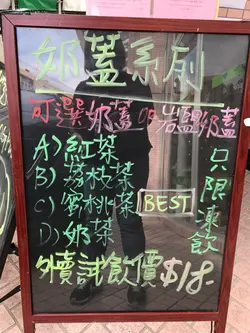 奶蓋系列
可選奶蓋 or 岩鹽奶蓋
A) 紅茶
B) 荔枝茶
C) 蜜桃茶 BEST
D) 奶茶
只限凍飲
外賣試飲價 $18-